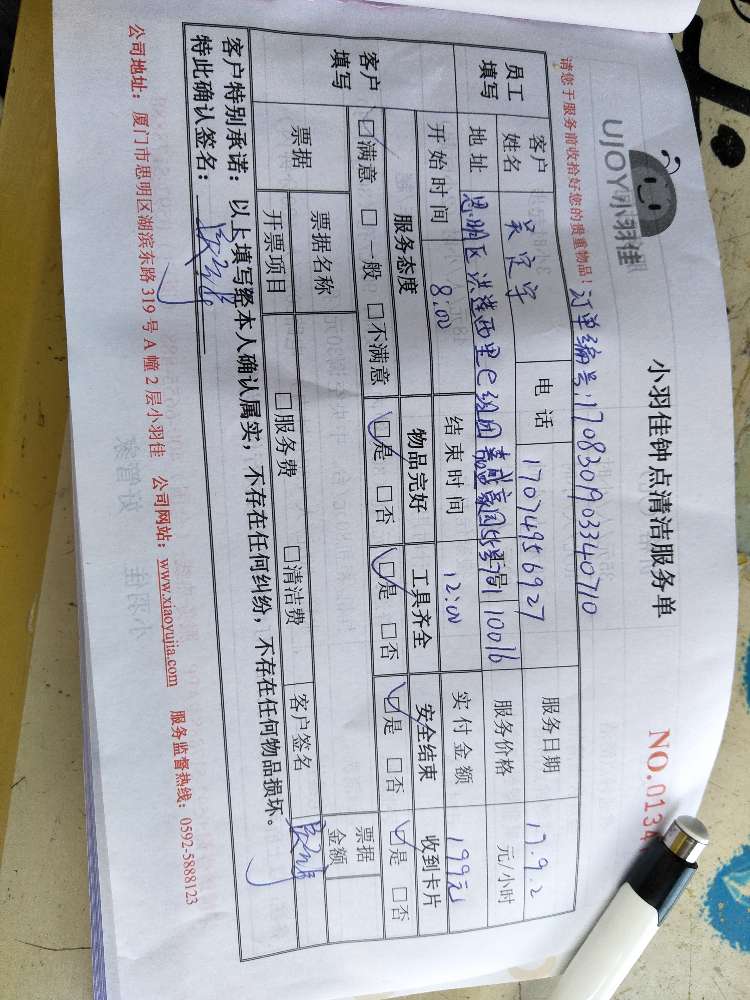 UJOY小羽佳
小羽佳钟点清洁服务单
NO.0134
请您于服务前收拾好您的贵重物品！
订单编号:170830903340710
员工填写 客户姓名 吴定宇 电话 17074956927 服务日期 17.9.2
地址 思明区洪莲西里 员工 10016 服务价格 元/小时
开始时间 8:00 结束时间 12:00 实付金额 199元
客户填写 服务态度 物品完好 工具齐全 安全结束 收到卡片
☑满意 □一般 □不满意 ☑是 □否 ☑是 □否 ☑是 □否 ☑是 □否
票据 票据名称 客户签名 票据金额
开票项目 □服务费 □清洁费
客户特别承诺：以上填写经本人确认属实，不存在任何纠纷，不存在任何物品损坏。
特此确认签名：
公司地址：厦门市思明区湖滨东路 319 号 A 幢 2 层小羽佳 公司网站：www.xiaoyujia.com 服务监督热线：0592-5888123